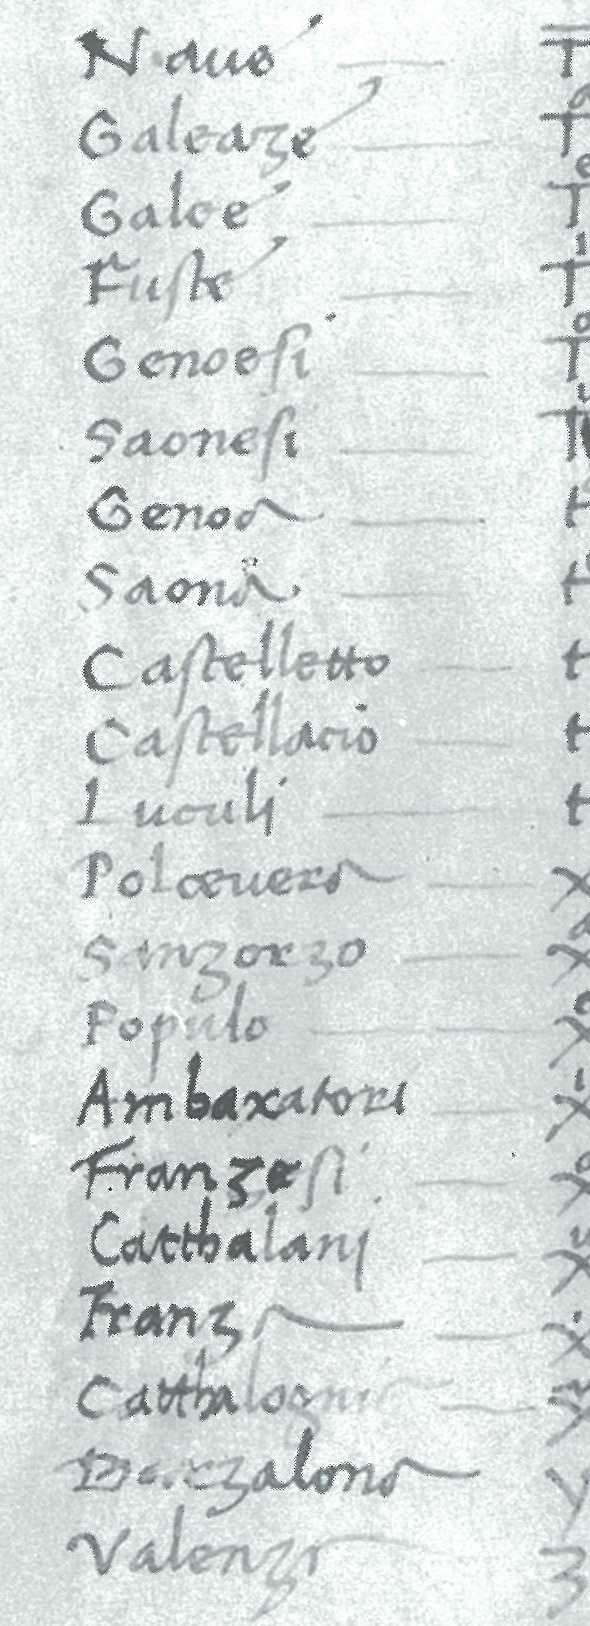 Naue — T
Galeaze — T
Galee — T
Fuste — T
Genoesi — T
Saonesi — T
Genoa — t
Saona — t
Castelletto — t
Castellacio — t
Luculi — t
Polceuera — x
Sanzorzo — x
Populo — x
Ambaxatori — x
Franzesi — x
Catthalanj — x
Franza — x
Catthalognia — y
Barzalona — y
Valenza — z